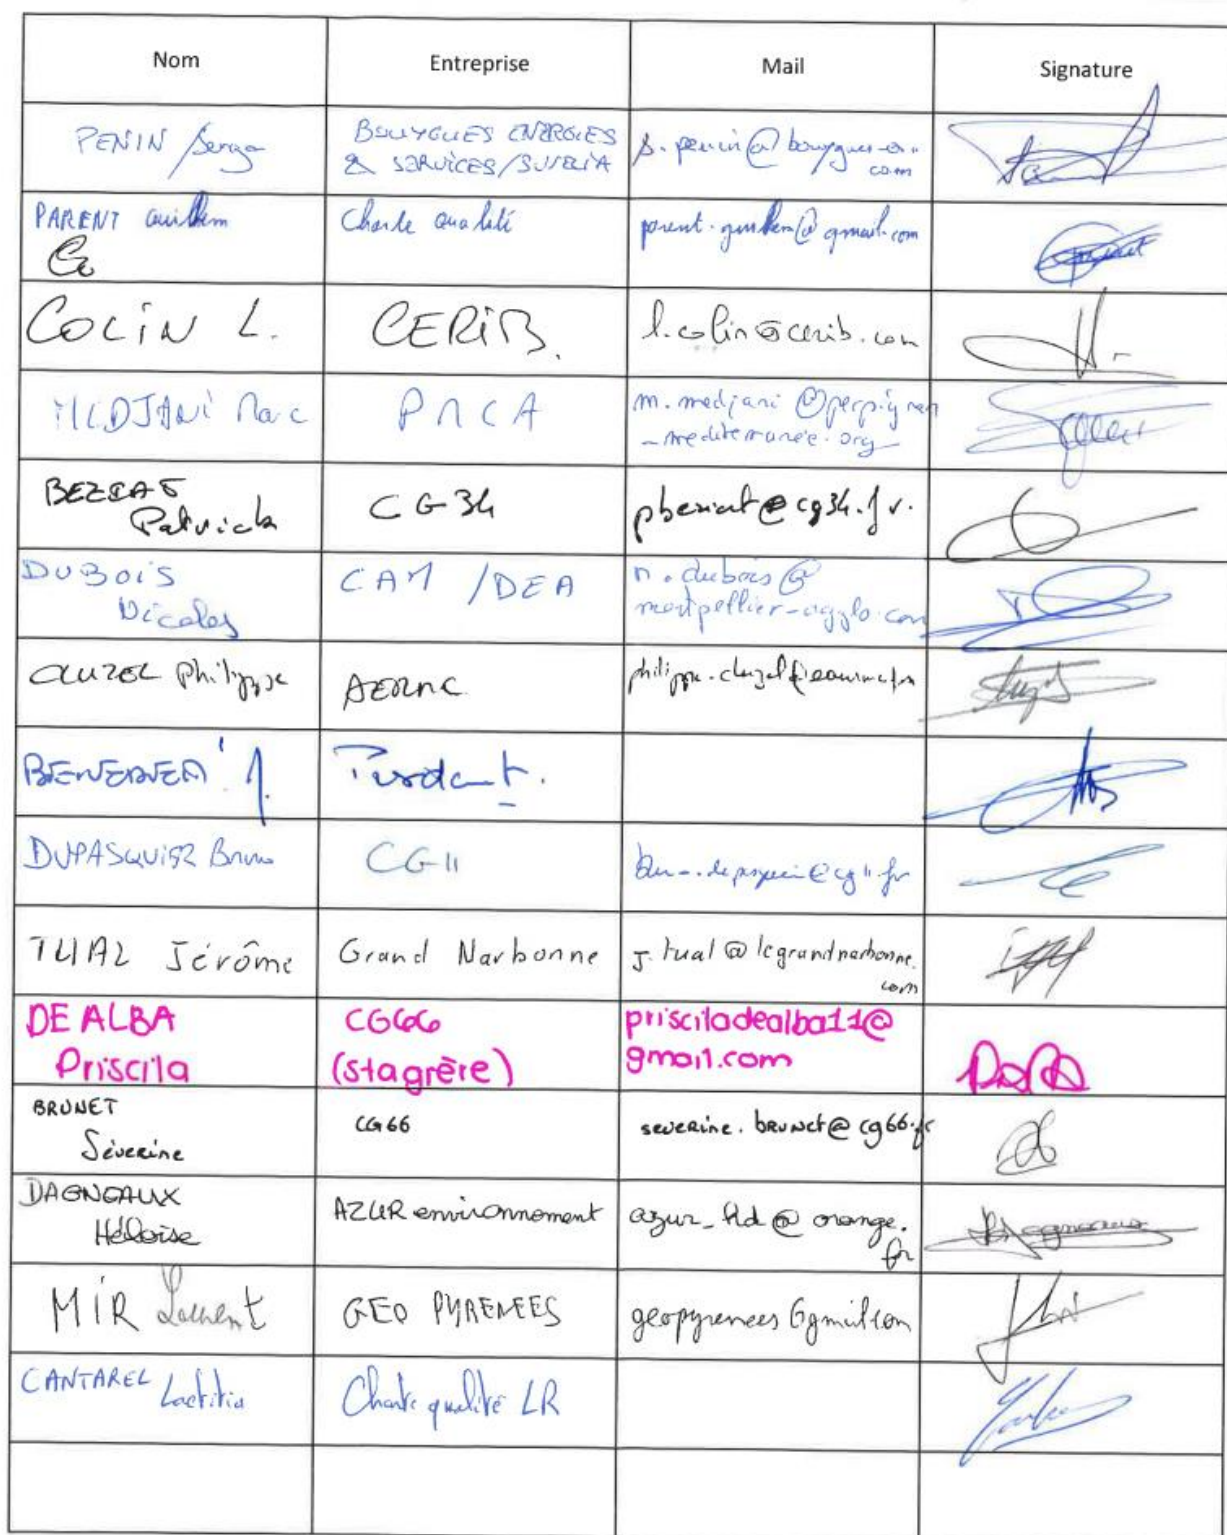 Nom Entreprise Mail Signature
PENIN Serge BOUYGUES ENERGIES
& SERVICES/ s. penin@bouygues-
com
PARENT Guilhem Charte Qualité parent.guilhem@gmail.com
COLIN L. CERIB. l.colin@cerib.com
MEDJANI Marc PMCA m.medjani@perpignan
-mediterranee.org
BEZIAT CG34
Patrick pbeziat@cg34.fr.
DUBOIS CAM /DEA n.dubois@
Nicolas montpellier-agglo.com
CLUZEL Philippe AERMC philippe.cluzel@eaurmc.fr
DUPASQUIER Bruno CG11 @cg11.fr
TUAL Jérôme Grand Narbonne j.tual@legrandnarbonne.
com
DE ALBA CG66 prisciladealba11@
Priscila (stagière) gmail.com
BRUNET CG66 severine.brunet@cg66.fr
Séverine
DAGNEAUX AZUR environnement azur_hd@orange.
Héloïse fr
MIR Laurent GEO PYRENEES geopyrenees@gmail.com
CANTAREL Laetitia Charte qualité LR